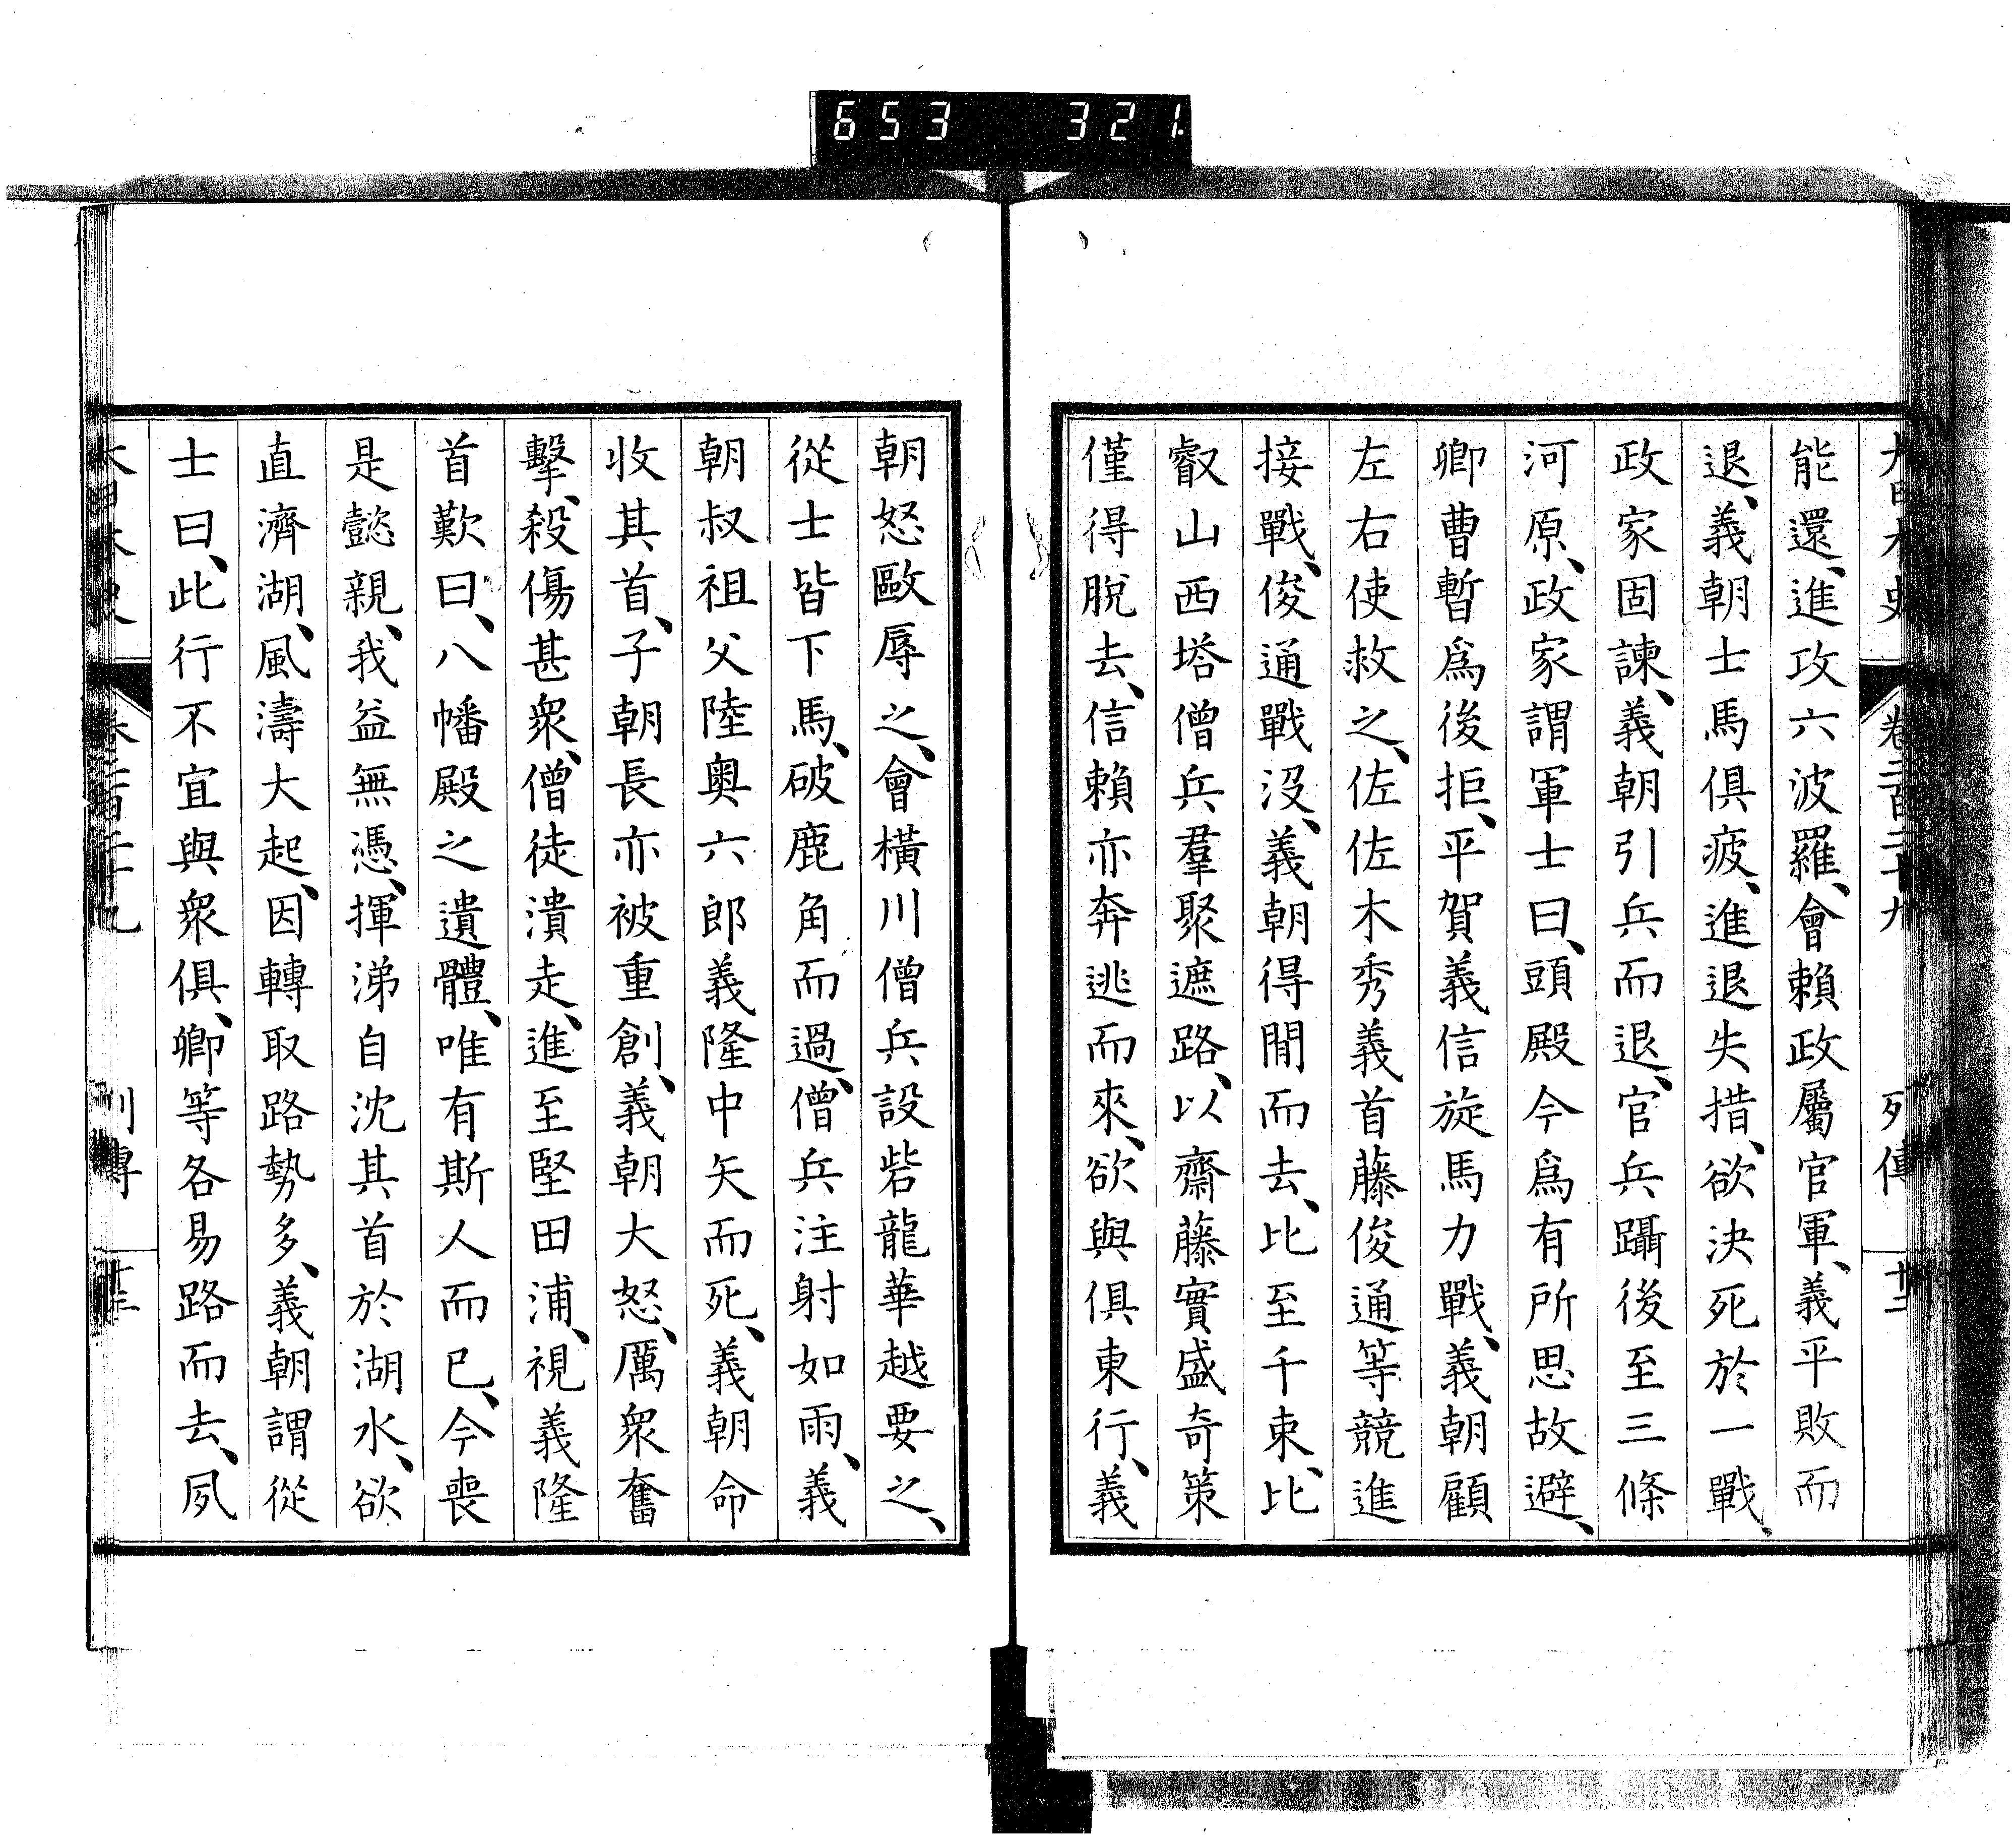 653 321
大日本史 卷二百二十九 列傳 十二
能還、進攻六波羅、會賴政屬官軍、義平敗而
退、義朝士馬俱疲、進退失措、欲決死於一戰、
政家固諫、義朝引兵而退、官兵躡後至三條
河原、政家謂軍士曰、頭殿今爲有所思故避、
卿曹暫爲後拒、平賀義信旋馬力戰、義朝顧
左右使救之、佐佐木秀義首藤俊通等競進
接戰、俊通戰沒、義朝得閒而去、比至千束、比
叡山西塔僧兵羣聚遮路、以齋藤實盛奇策
僅得脫去、信賴亦奔逃而來、欲與俱東行、義
朝怒毆辱之、會橫川僧兵設砦龍華越要之、
從士皆下馬、破鹿角而過、僧兵注射如雨、義
朝叔祖父陸奥六郎義隆中矢而死、義朝命
收其首、子朝長亦被重創、義朝大怒、厲衆奮
擊、殺傷甚衆、僧徒潰走、進至堅田浦、視義隆
首歎曰、八幡殿之遺體、唯有斯人而已、今喪
是懿親、我益無憑、揮涕自沈其首於湖水、欲
直濟湖、風濤大起、因轉取路勢多、義朝謂從
士曰、此行不宜與衆俱、卿等各易路而去、夙
大日本史 卷二百二十九 列傳 十三